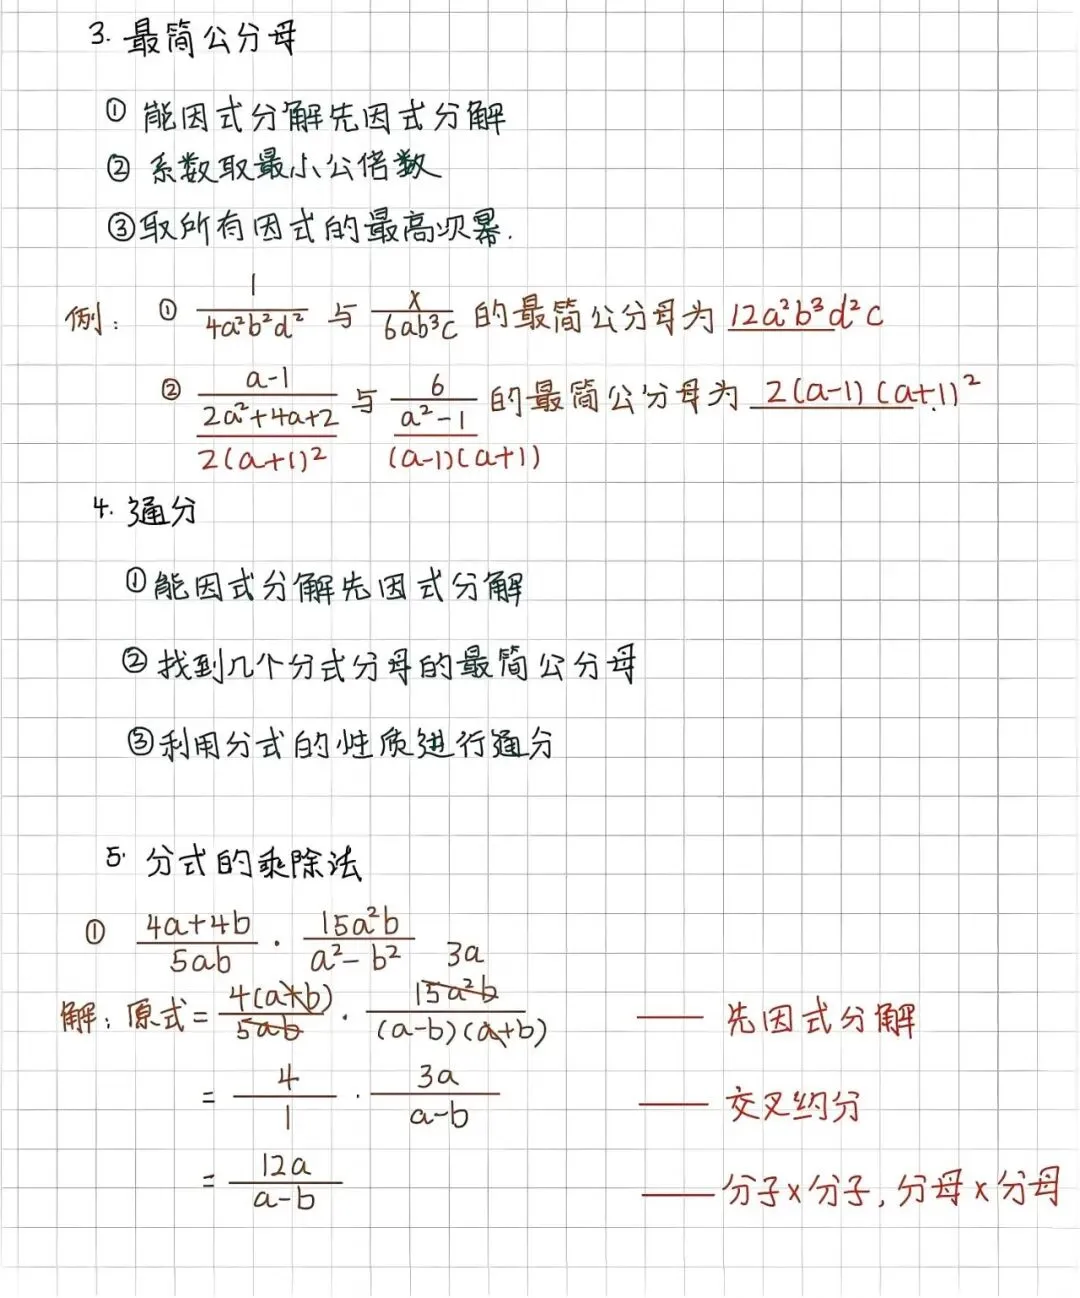 3. 最简公分母
① 能因式分解先因式分解
② 系数取最小公倍数
③取所有因式的最高次幂.
例: ① 1/(4a²b²d²) 与 x/(6ab³c) 的最简公分母为 12a²b³d²c
② (a-1)/(2a²+4a+2) 与 6/(a²-1) 的最简公分母为 2(a-1)(a+1)²
2(a+1)² (a-1)(a+1)
4. 通分
①能因式分解先因式分解
②找到几个分式分母的最简公分母
③利用分式的性质进行通分
5. 分式的乘除法
① (4a+4b)/(5ab) · (15a²b)/(a²-b²)
3a
解: 原式 = 4(a+b)/(5ab) · 15a²b/((a-b)(a+b)) —— 先因式分解
= 4/1 · 3a/(a-b) —— 交叉约分
= 12a/(a-b) —— 分子×分子, 分母×分母